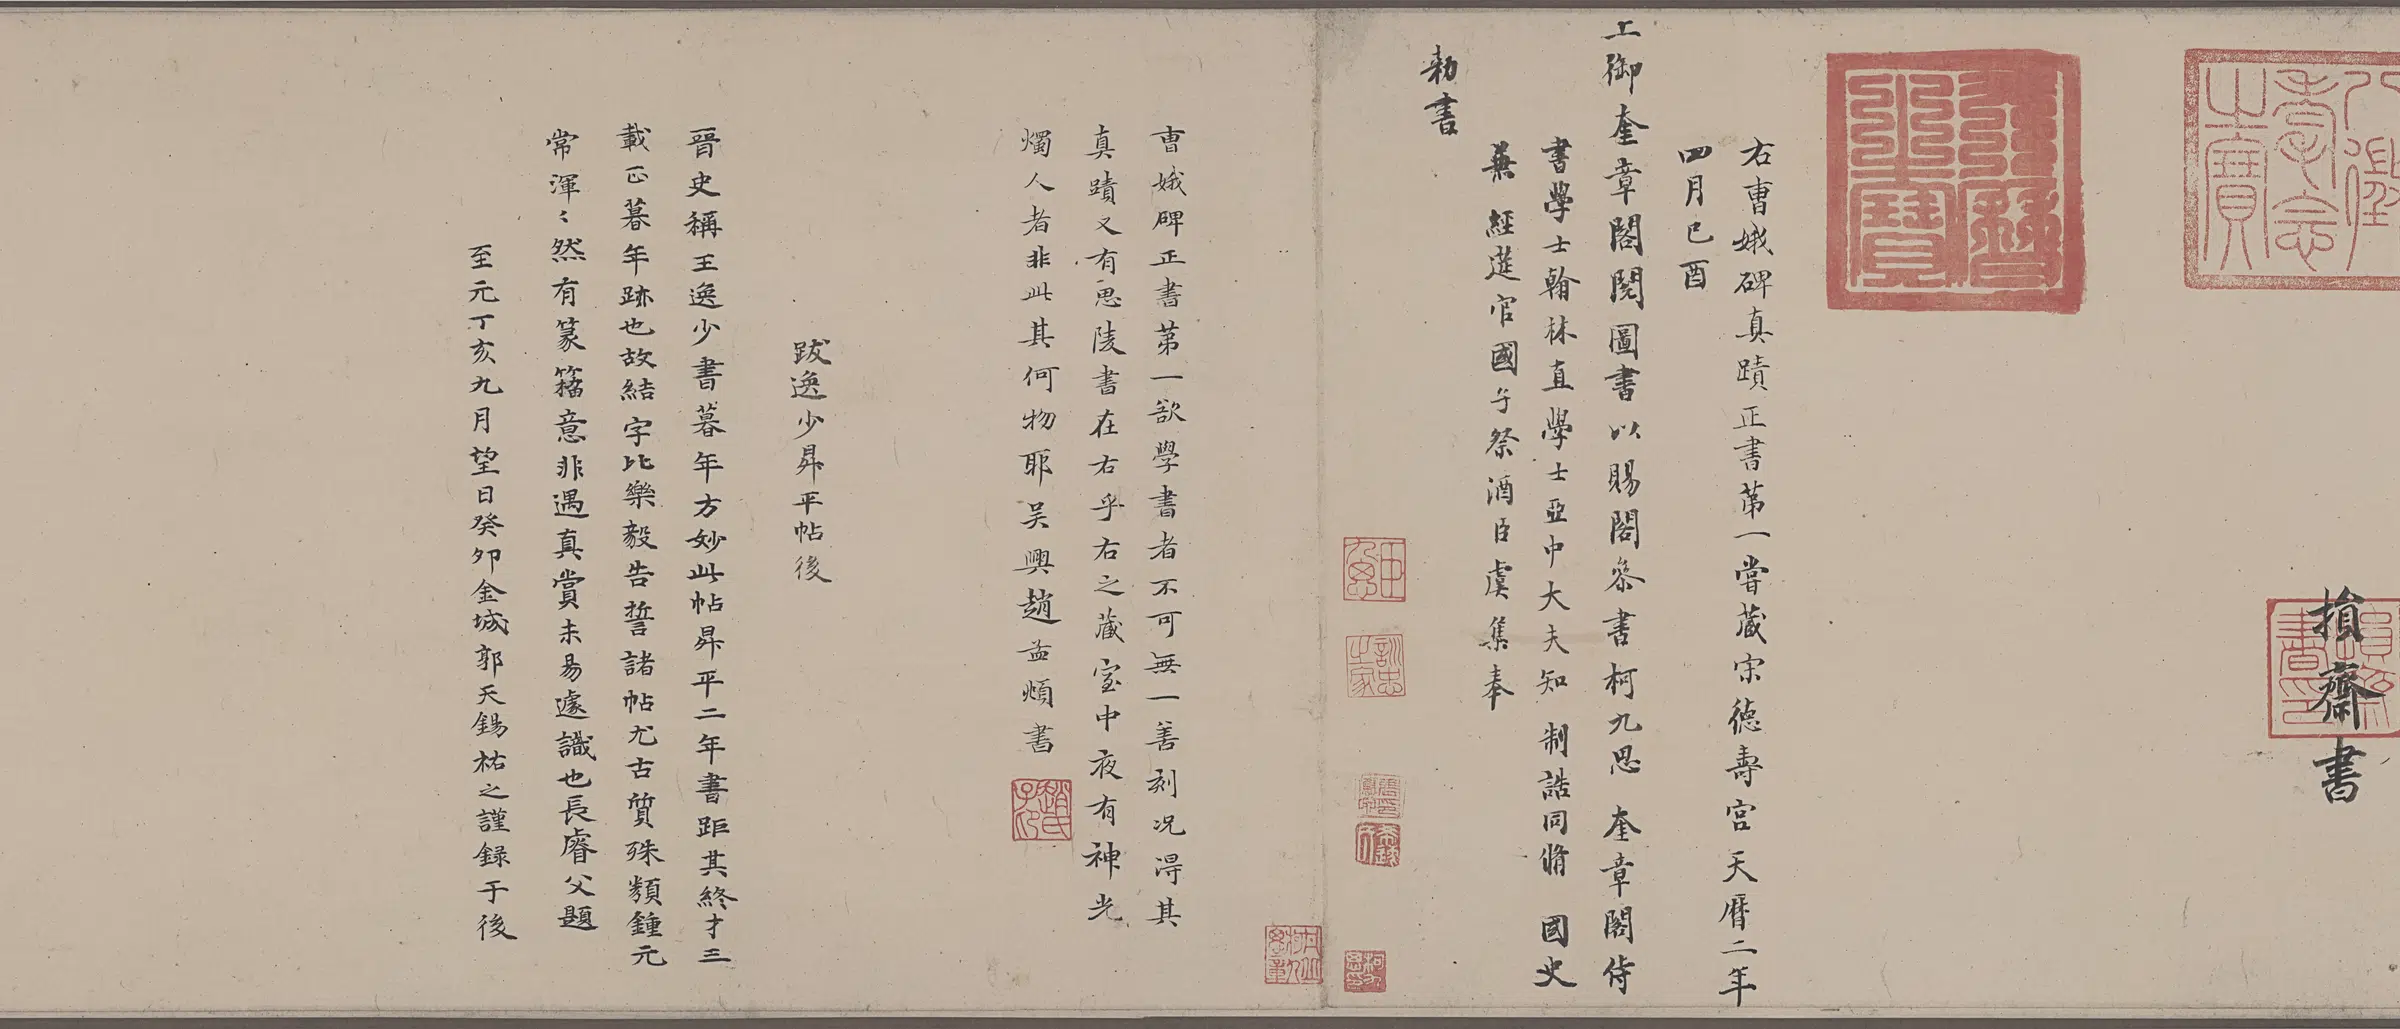 損齋書
八徵耄念之寶
損齋書印
天曆之寶
右曹娥碑真蹟正書第一嘗藏宋德壽宮天曆二年
四月己酉
上御奎章閣閱圖書以賜閣叅書柯九思奎章閣侍
書學士翰林直學士亞中大夫知制誥同脩國史
兼經筵官國子祭酒臣虞集奉
勑書
訓忠之家
柯九思印
曹娥碑正書第一欲學書者不可無一善刻況得其
真蹟又有思陵書在右乎右之藏室中夜有神光
燭人者非此其何物耶吴興趙孟頫書
趙氏子昂
跋逸少昇平帖後
晉史稱王逸少書暮年方妙此帖昇平二年書距其終才三
載正暮年跡也故結字比樂毅告誓諸帖尤古質殊類鍾元
常渾〻然有篆籀意非遇真賞未易遽識也長睿父題
至元丁亥九月望日癸卯金城郭天錫祐之謹録于後